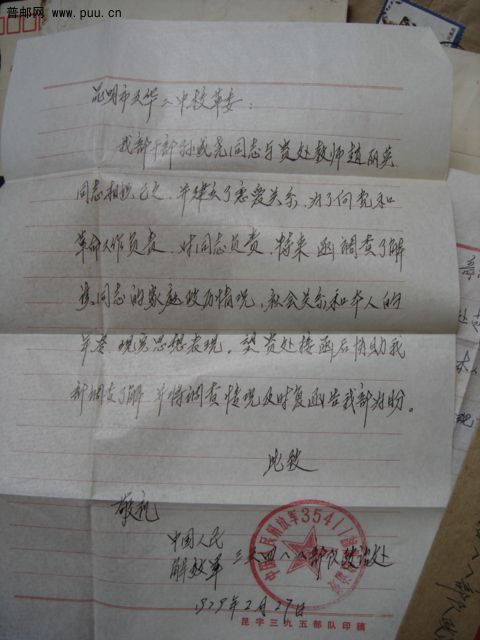 普邮网 www.puu.cn
昆明市 华 中校革委：
我部干部孙成尧同志与贵处教师赵丽英
同志相识已久，并建立了恋爱关系，为了向党和
革命工作负责，对同志负责，特来函调查了解
该同志的家庭政历情况，社会关系和本人的
年令，现实思想表现，望贵处接函后协助我
部调查了解，并将调查情况及时复函告我部为盼。
此致
敬礼
中国人民
解放军 三五四一八部队政治处
中国人民解放军3541 部队
1979年2月27日
昆字三九五部队印稿